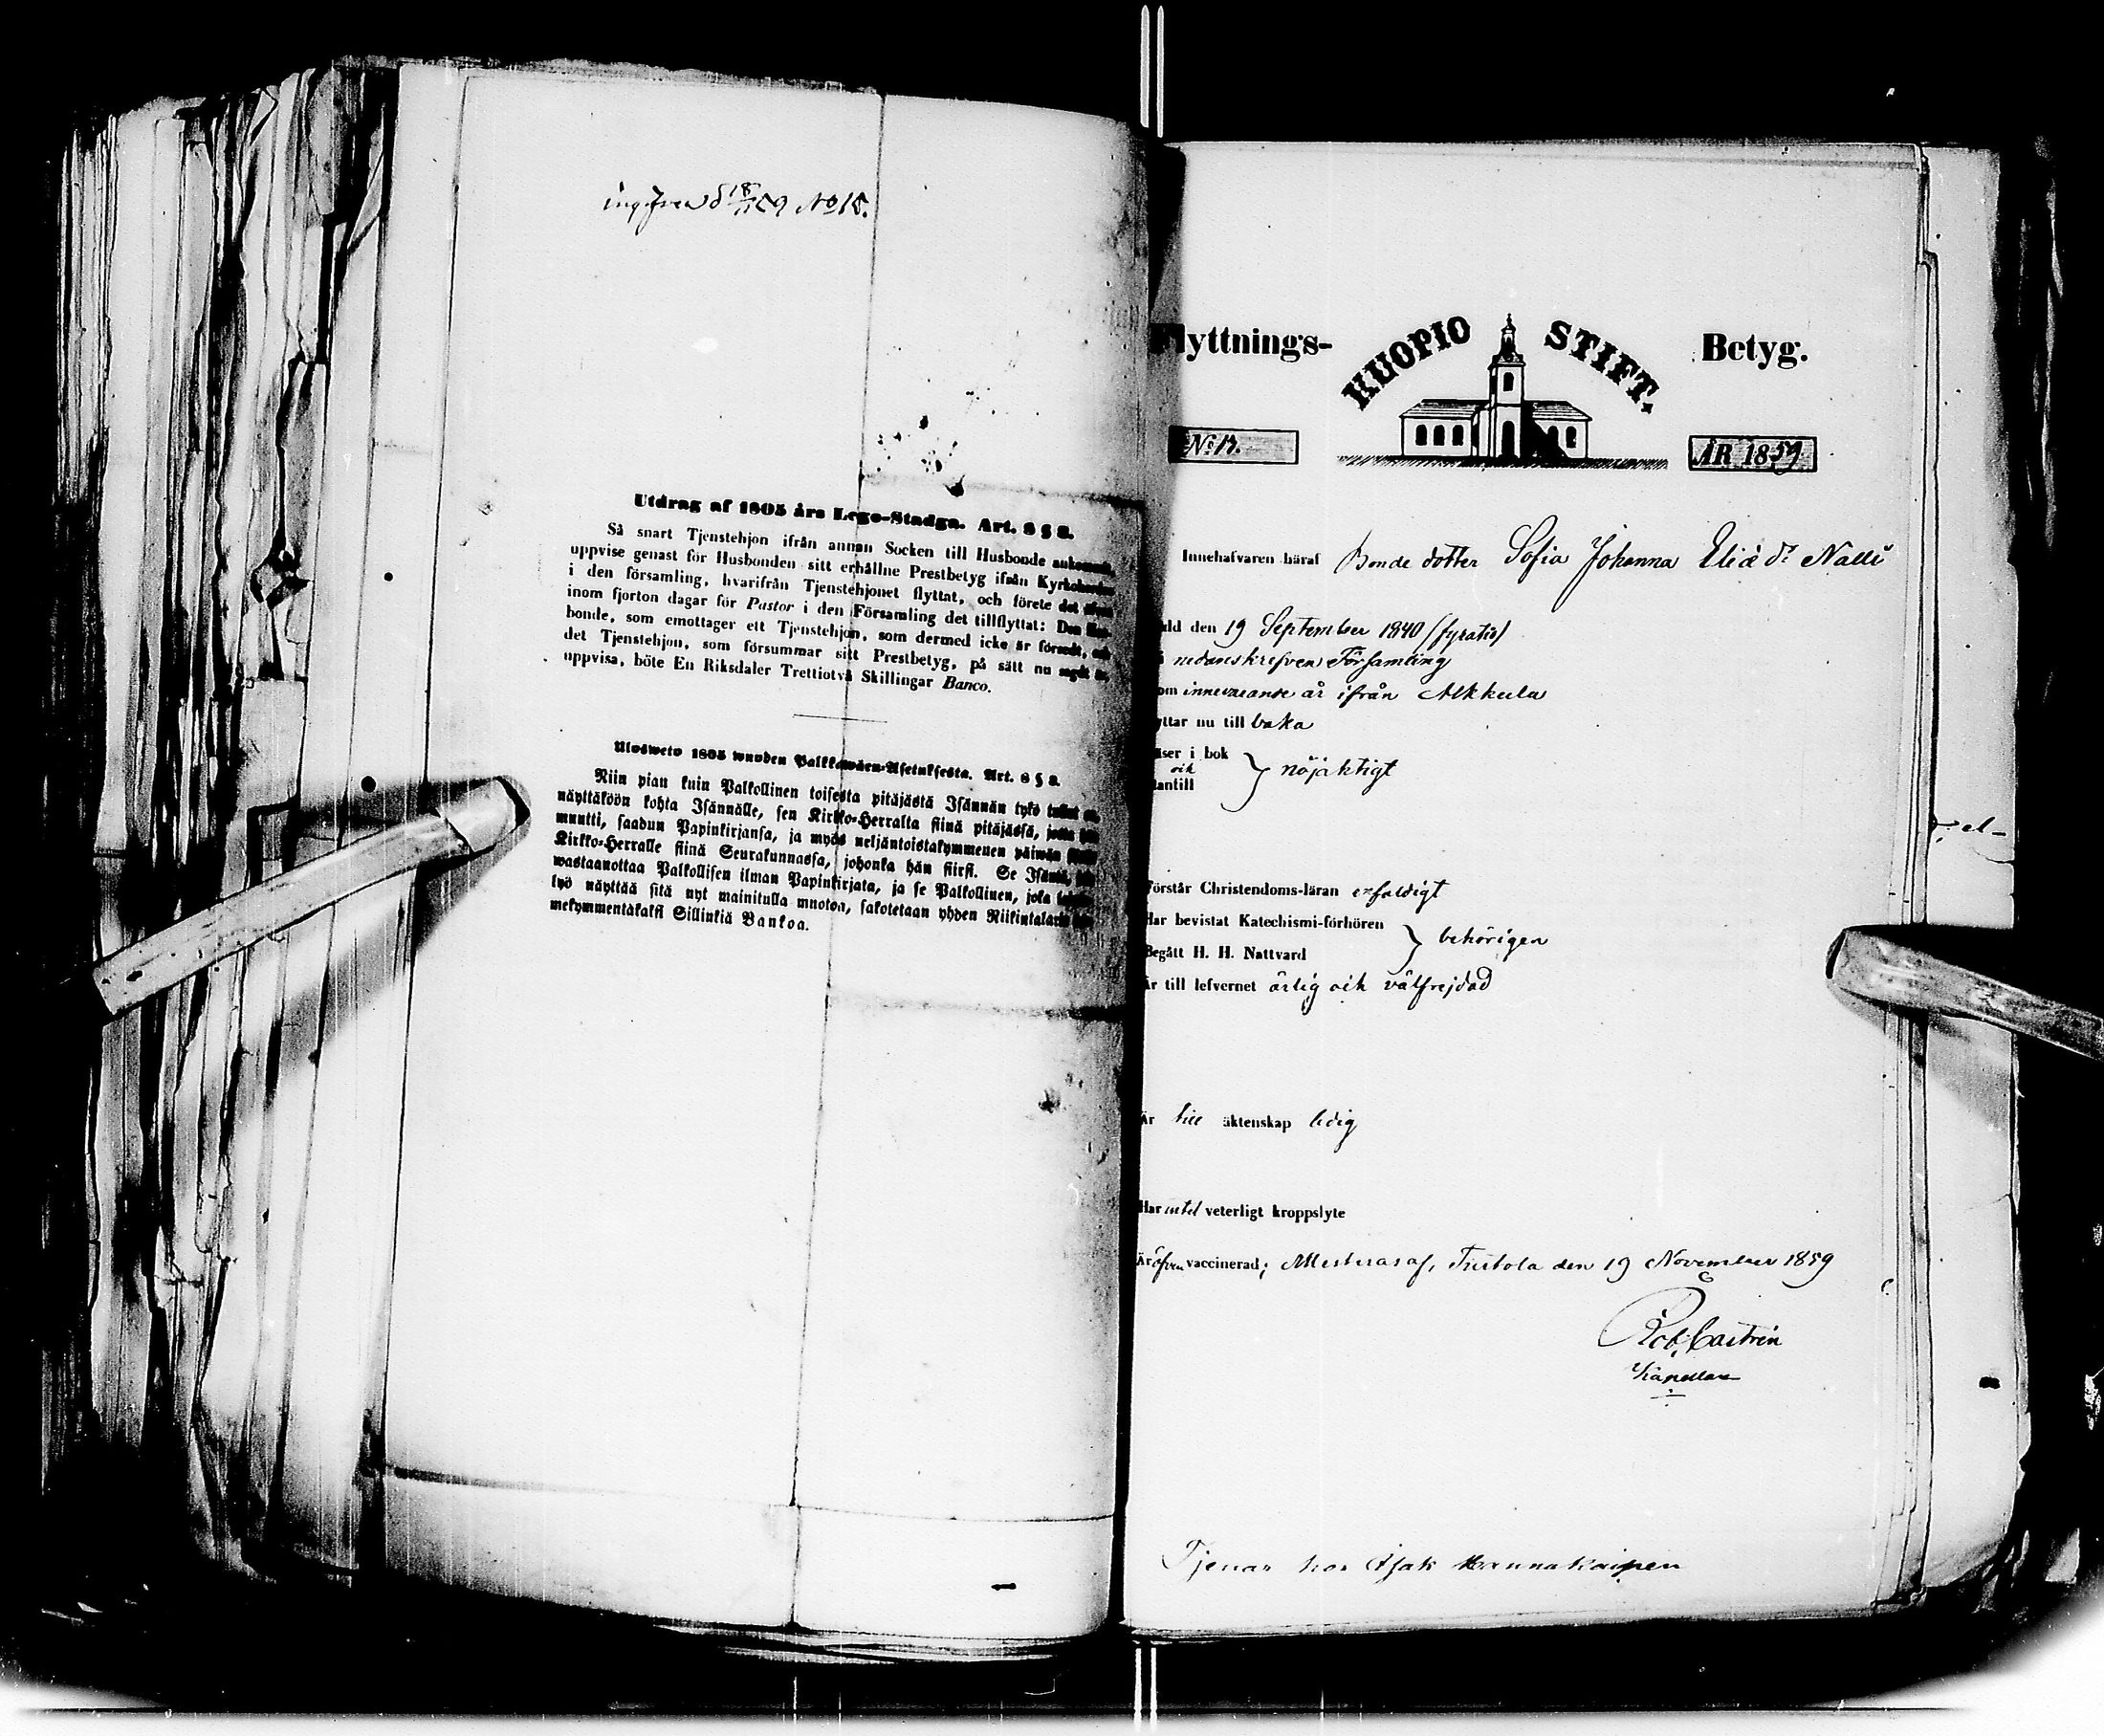 No 15.
Utdrag af 1805 års Lego-Stadga. Art. 8 § 8.
Så snart Tjenstehjon ifrån annan Socken till Husbonde ankommit,
uppvise genast för Husbonden sitt erhållne Prestbetyg ifrån Kyrkoherden
i den församling, hvarifrån Tjenstehjonet flyttat, och förete det äfven
inom fjorton dagar för Pastor i den Församling det tillflyttat: Den Hus-
bonde, som emottager ett Tjenstehjon, som dermed icke är försedt, och
det Tjenstehjon, som försummar sitt Prestbetyg, på sätt nu sagdt är,
uppvisa, böte En Riksdaler Trettiotvå Skillingar Banco.
Ulosweto 1805 wuoden Palkkawäen-Asetuksesta. Art. 8 § 8.
Niin pian kuin Palkollinen toisesta pitäjästä Isännän tykö tullut on,
näyttäköön kohta Isännälle, sen Kirkko-Herralta siinä pitäjässä, josta hän
muutti, saadun Papinkirjansa, ja myös neljäntoistakymmenen päiwän
Kirkko-Herralle siinä Seurakunnassa, johonka hän siirsi. Se Isäntä,
wastaanottaa Palkollisen ilman Papinkirjata, ja se Palkollinen, joka
lyö näyttää sitä nyt mainitulla muotoa, sakotetaan yhden Riikintalarin
mekymmentäkaksi Sillinkiä Bankoa.
lyttnings- KUOPIO STIFT. Betyg.
No 17. ÅR 1859
Innehafvaren häraf Bonde dotter Sofia Johanna Eliæ dr Nalli
dd den 19 September 1840 (fyratio)
nedanskrefven Församling
om innevarande år ifrån Alkkula
yttar nu till baka
äser i bok
och
tantill } nöjaktigt
Förstår Christendoms-läran enfaldigt
Har bevistat Katechismi-förhören
Begått H. H. Nattvard } behörigen
Är till lefvernet ärlig och välfrejdad
Är till äktenskap ledig
Har intet veterligt kroppslyte
Är äfven vaccinerad; Mesterasaf, Turtola den 19 November 1859
Rob. Castrén
Kapellan
Tjenar hos Isak Hannukainen